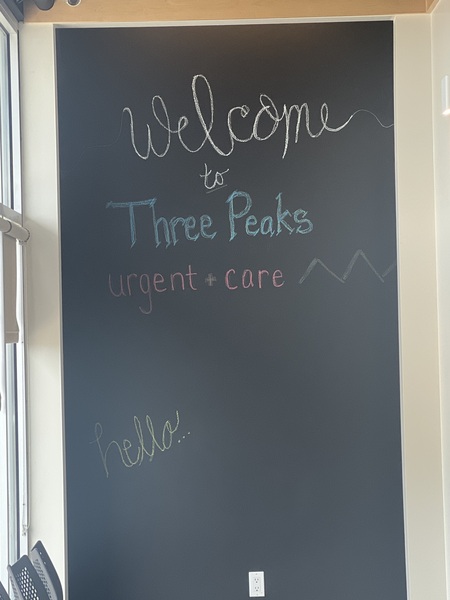 Welcome
to
Three Peaks
urgent + care
hello...